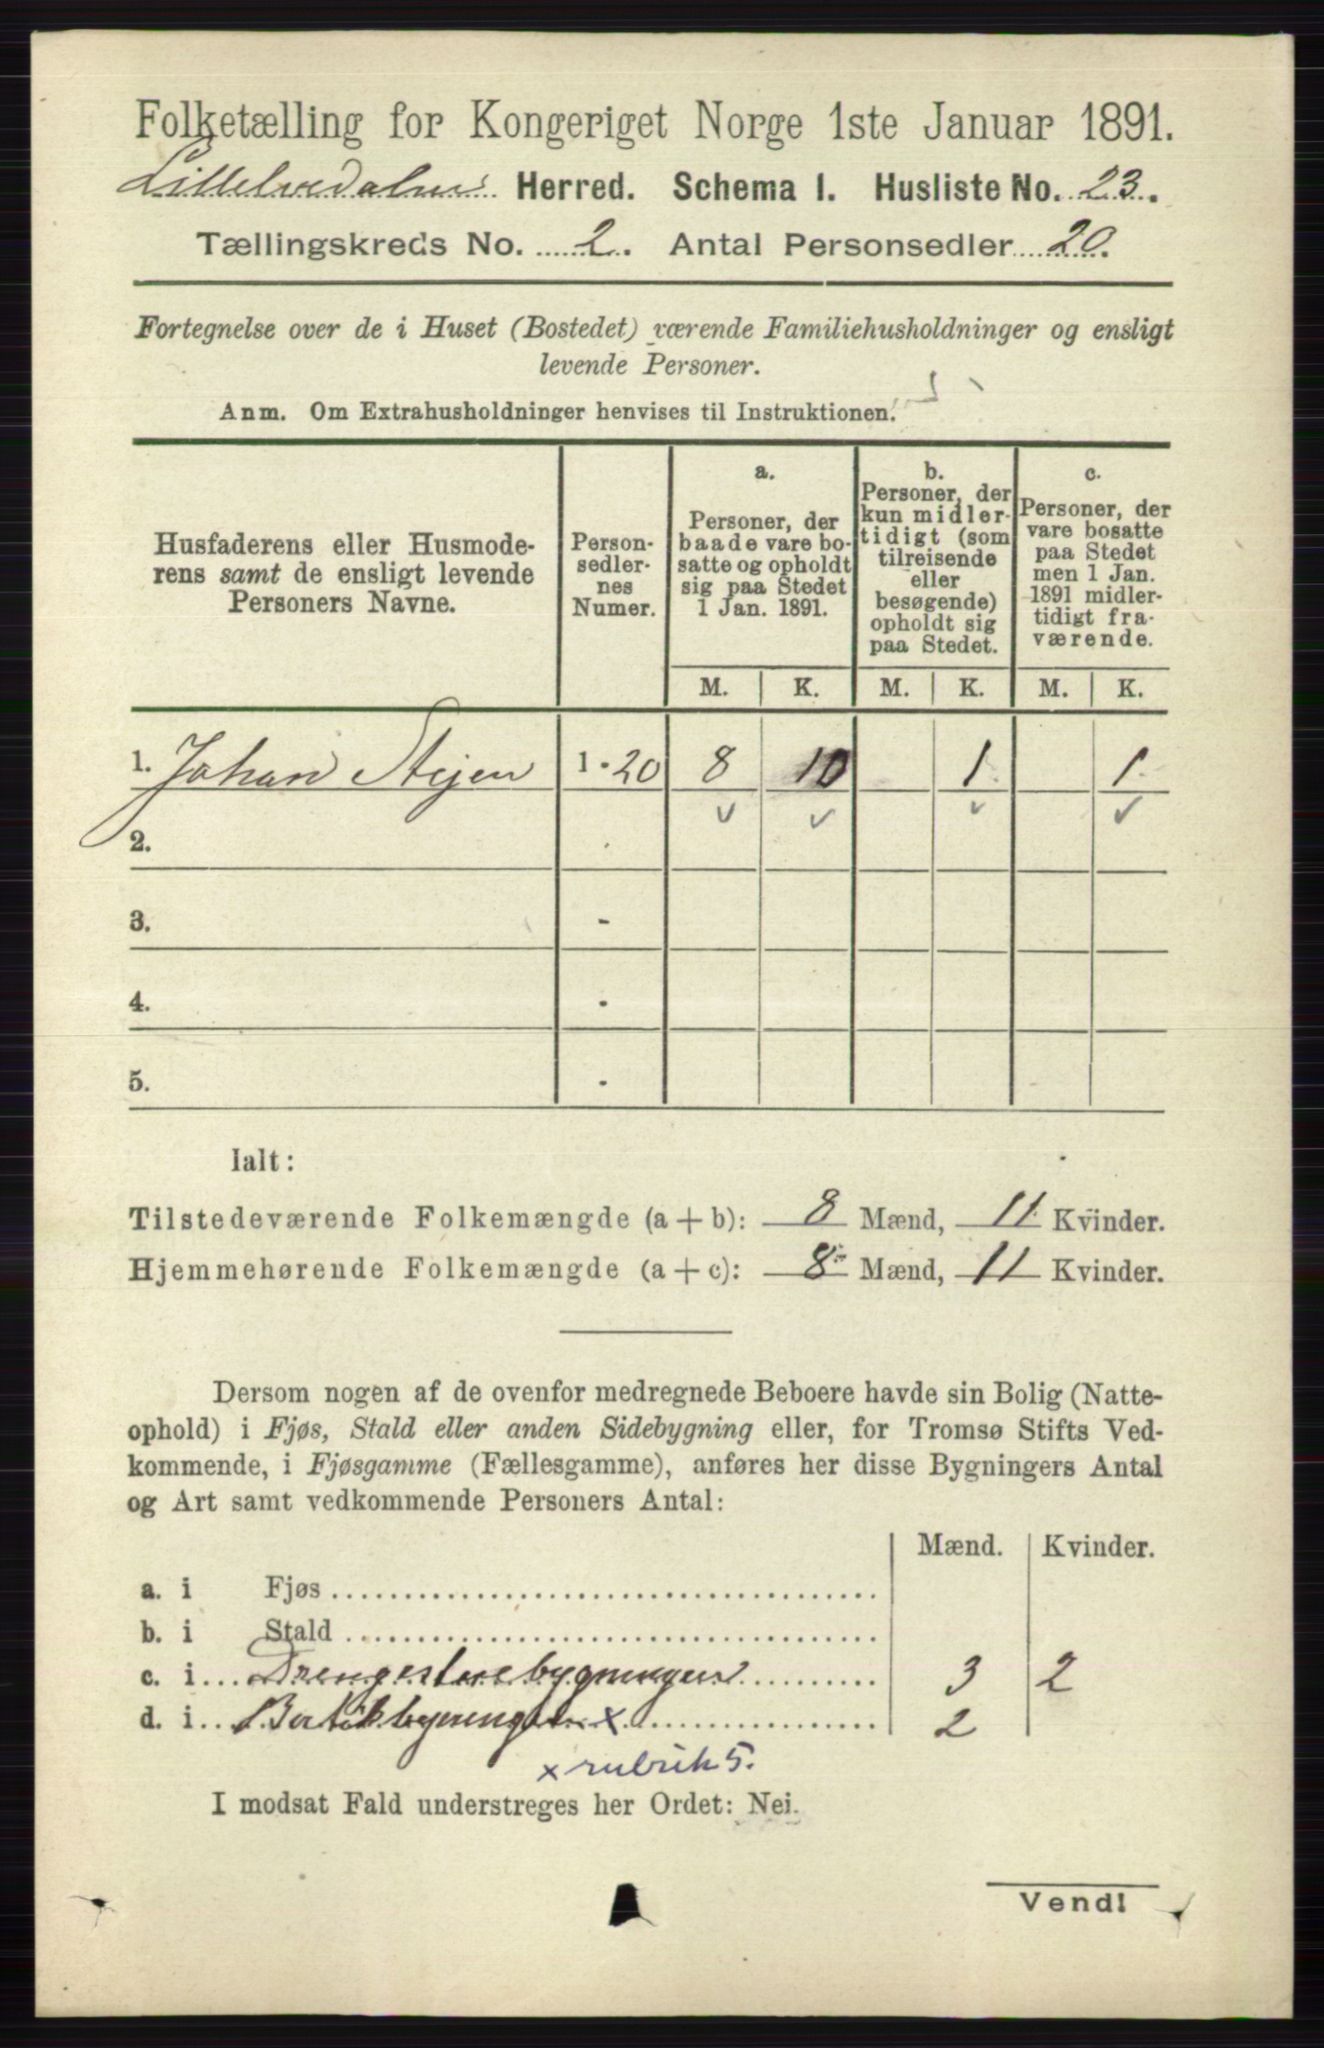 Folketælling for Kongeriget Norge 1ste Januar 1891.
Lilleelvedalens Herred. Schema I. Husliste No. 23.
Tællingskreds No. 2. Antal Personsedler 20.
Fortegnelse over de i Huset (Bostedet) værende Familiehusholdninger og ensligt
levende Personer.
Anm. Om Extrahusholdninger henvises til Instruktionen.
Husfaderens eller Husmode-
rens samt de ensligt levende
Personers Navne.
Person-
sedler-
nes
Numer.
a.
Personer, der
baade vare bo-
satte og opholdt
sig paa Stedet
1 Jan. 1891.
b.
Personer, der
kun midler-
tidigt (som
tilreisende
eller
besøgende)
opholdt sig
paa Stedet.
c.
Personer, der
vare bosatte
paa Stedet
men 1 Jan.
1891 midler-
tidigt fra-
værende.
M. K. M. K. M. K.
1. Johan Steien 1-20 8 10 1 1
2.
3. -
4. -
5. -
Ialt:
Tilstedeværende Folkemængde (a + b): 8 Mænd, 11 Kvinder.
Hjemmehørende Folkemængde (a + c): 8 Mænd, 11 Kvinder.
Dersom nogen af de ovenfor medregnede Beboere havde sin Bolig (Natte-
ophold) i Fjøs, Stald eller anden Sidebygning eller, for Tromsø Stifts Ved-
kommende, i Fjøsgamme (Fællesgamme), anføres her disse Bygningers Antal
og Art samt vedkommende Personers Antal:
Mænd. Kvinder.
a. i Fjøs
b. i Stald
c. i Drengestuebygningen 3 2
d. i x 2
x rubrik 5.
I modsat Fald understreges her Ordet: Nei.
Vend!